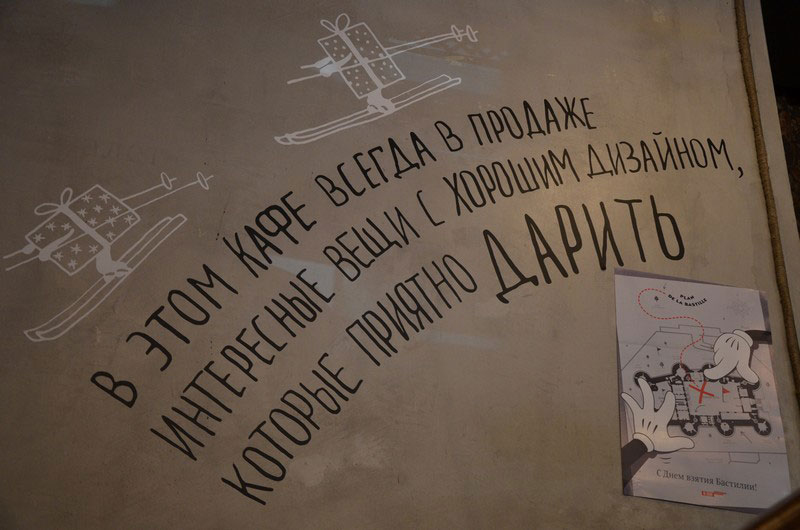 В ЭТОМ КАФЕ ВСЕГДА В ПРОДАЖЕ
ИНТЕРЕСНЫЕ ВЕЩИ С ХОРОШИМ ДИЗАЙНОМ,
КОТОРЫЕ ПРИЯТНО ДАРИТЬ
PLAN
DE LA BASTILLE
С Днем взятия Бастилии!